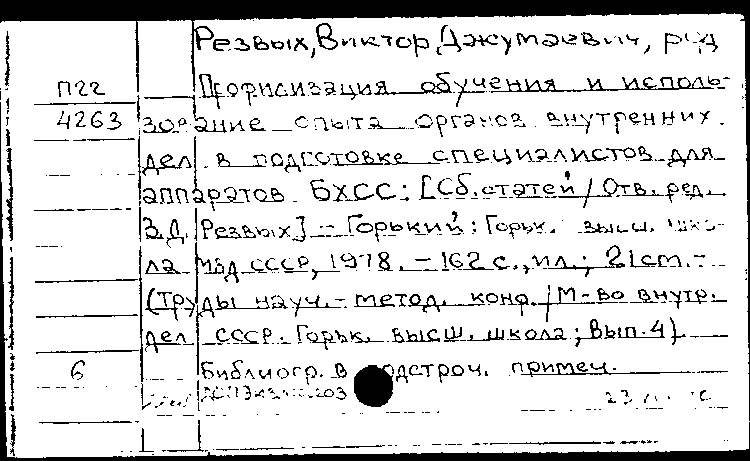 Резвых, Виктор Джумаевич, ред
П22 Профилизация обучения и исполь-
4263 зование опыта органов внутренних
дел в подготовке специалистов для
аппаратов БХСС: [Сб. статей / Отв. ред.
В.Д. Резвых] - Горький: Горьк. высш. шко-
ла МВД СССР, 1978. - 162 с., ил.; 21 см. -
(Труды науч.-метод. конф. / М-во внутр.
дел СССР. Горьк. высш. школа; Вып. 4).
6 Библиогр. в подстроч. примеч.
23